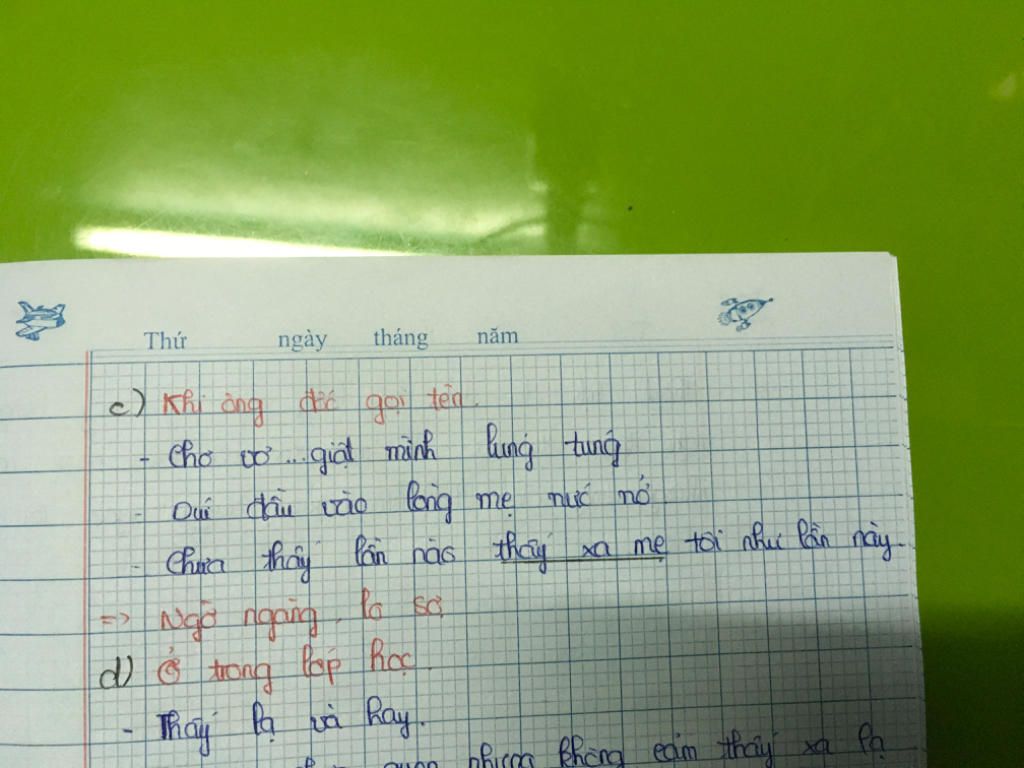 Thứ ngày tháng năm
c) Khi ông đốc gọi tên.
- Chơ vơ... giật mình lung tung
- Dúi đầu vào lòng mẹ nức nở
- Chưa thấy lần nào thấy xa mẹ tôi như lần này.
=> Ngỡ ngàng, lo sợ
d) Ở trong lớp học.
- Thấy lạ và hay.
nhưng không cảm thấy xa lạ